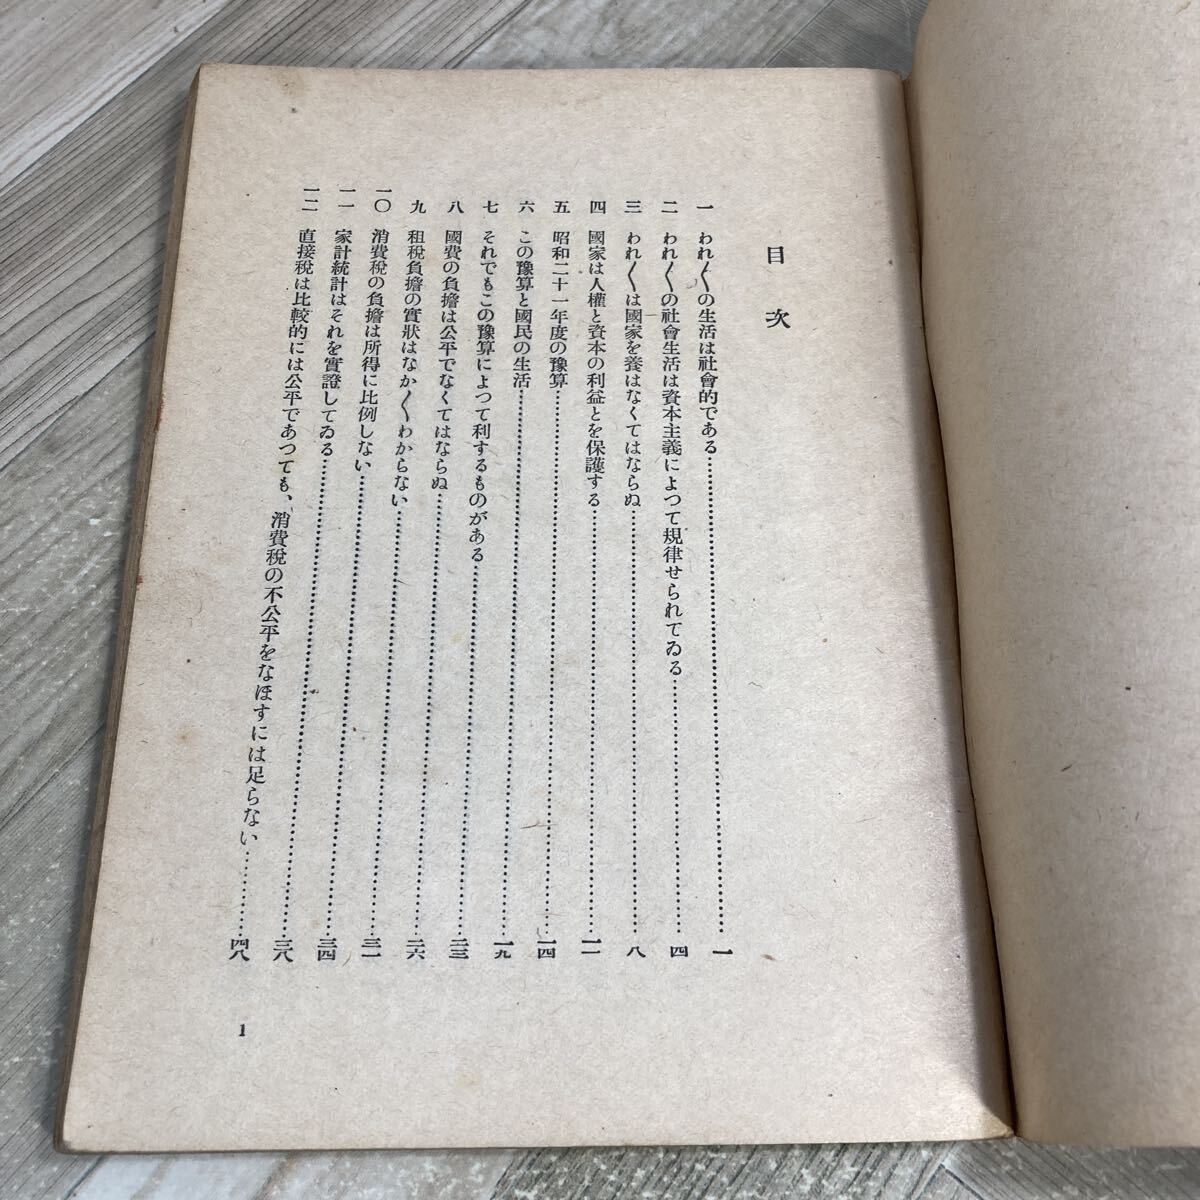 目次
一 われ〱の生活は社會的である……一
二 われ〱の社會生活は資本主義によつて規律せられてゐる……四
三 われ〱は國家を養はなくてはならぬ……八
四 國家は人權と資本の利益とを保護する……一一
五 昭和二十一年度の豫算……一四
六 この豫算と國民の生活……一九
七 それでもこの豫算によつて利するものがある……二三
八 國費の負擔は公平でなくてはならぬ……二六
九 租税負擔の實狀はなか〱わからない……三一
一〇 消費税の負擔は所得に比例しない……三四
一一 家計統計はそれを實證してゐる……三八
一二 直接税は比較的には公平であつても、消費税の不公平をなほすには足らない……四八
1